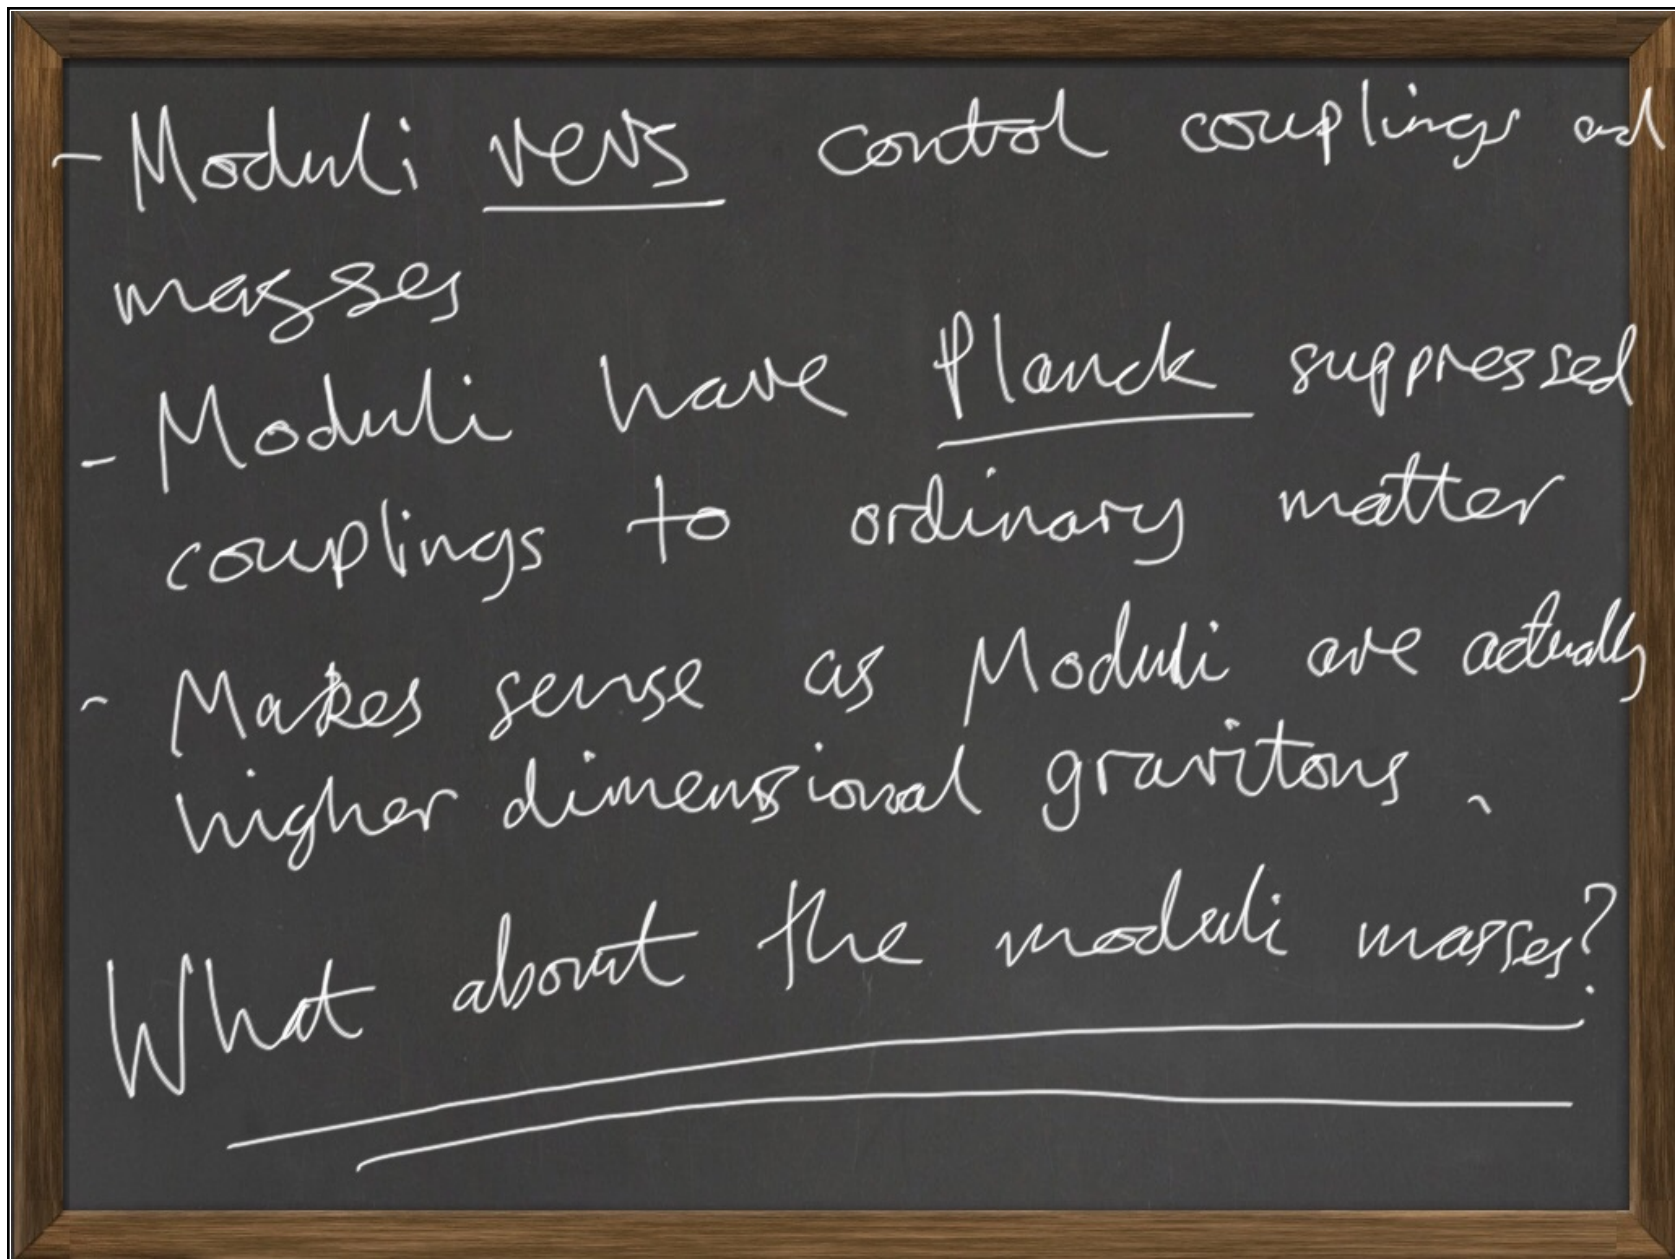 - Moduli vevs control couplings and
masses
- Moduli have Planck suppressed
couplings to ordinary matter
- Makes sense as Moduli are actually
higher dimensional gravitons.
What about the moduli masses?